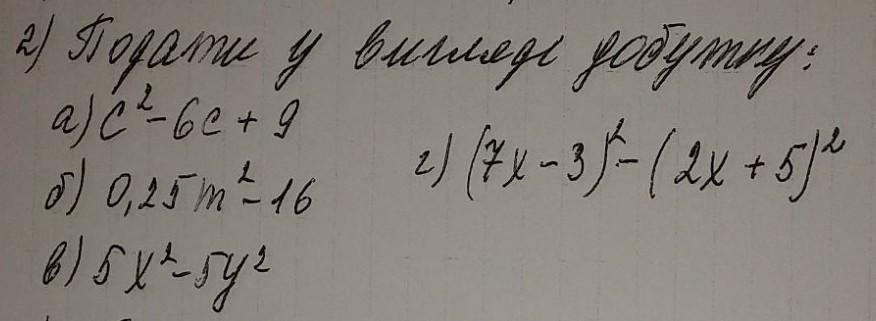 2) Подати у вигляді добутку:
а) c² - 6c + 9
б) 0,25m² - 16
в) 5x² - 5y²
г) (7x - 3)² - (2x + 5)²